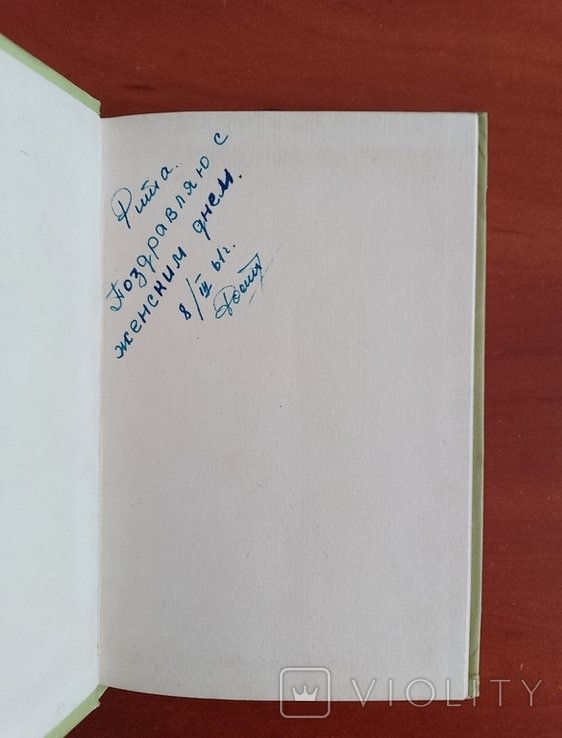 Рита.
Поздравляю с
женским днем.
8/III 61г.
VIOLITY